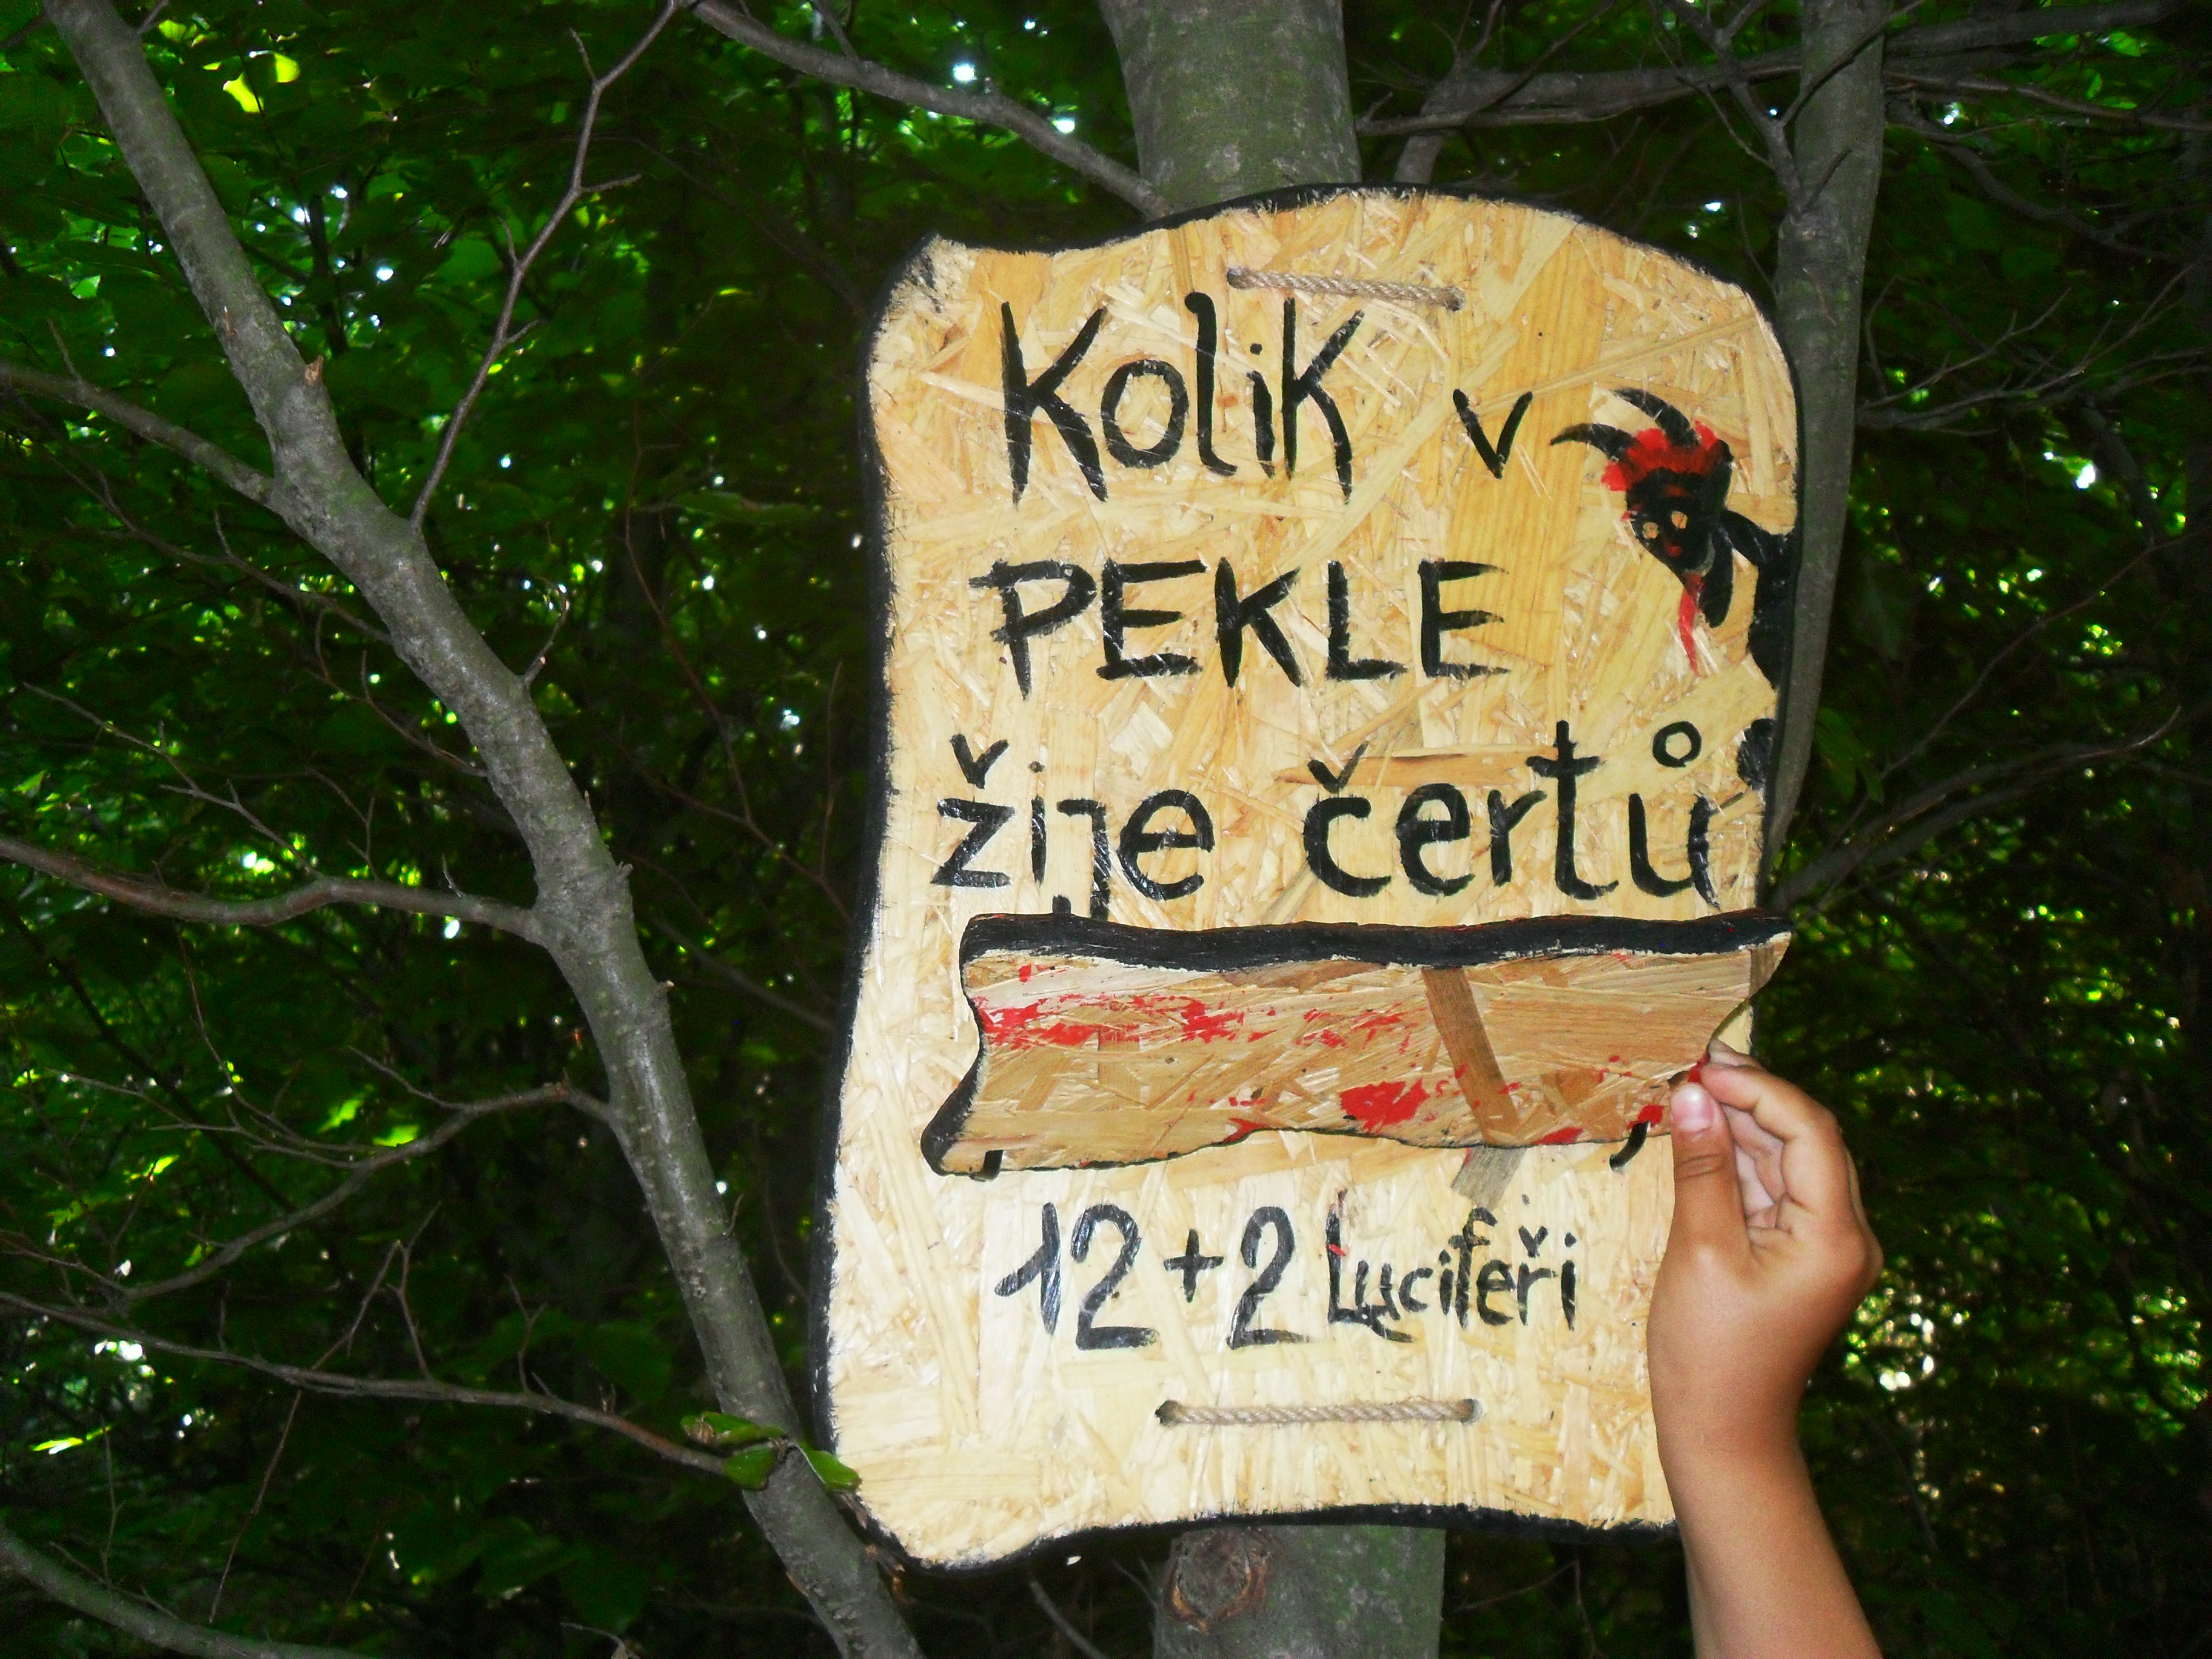 Kolik v
PEKLE
žije čertů
12+2 Luciferi